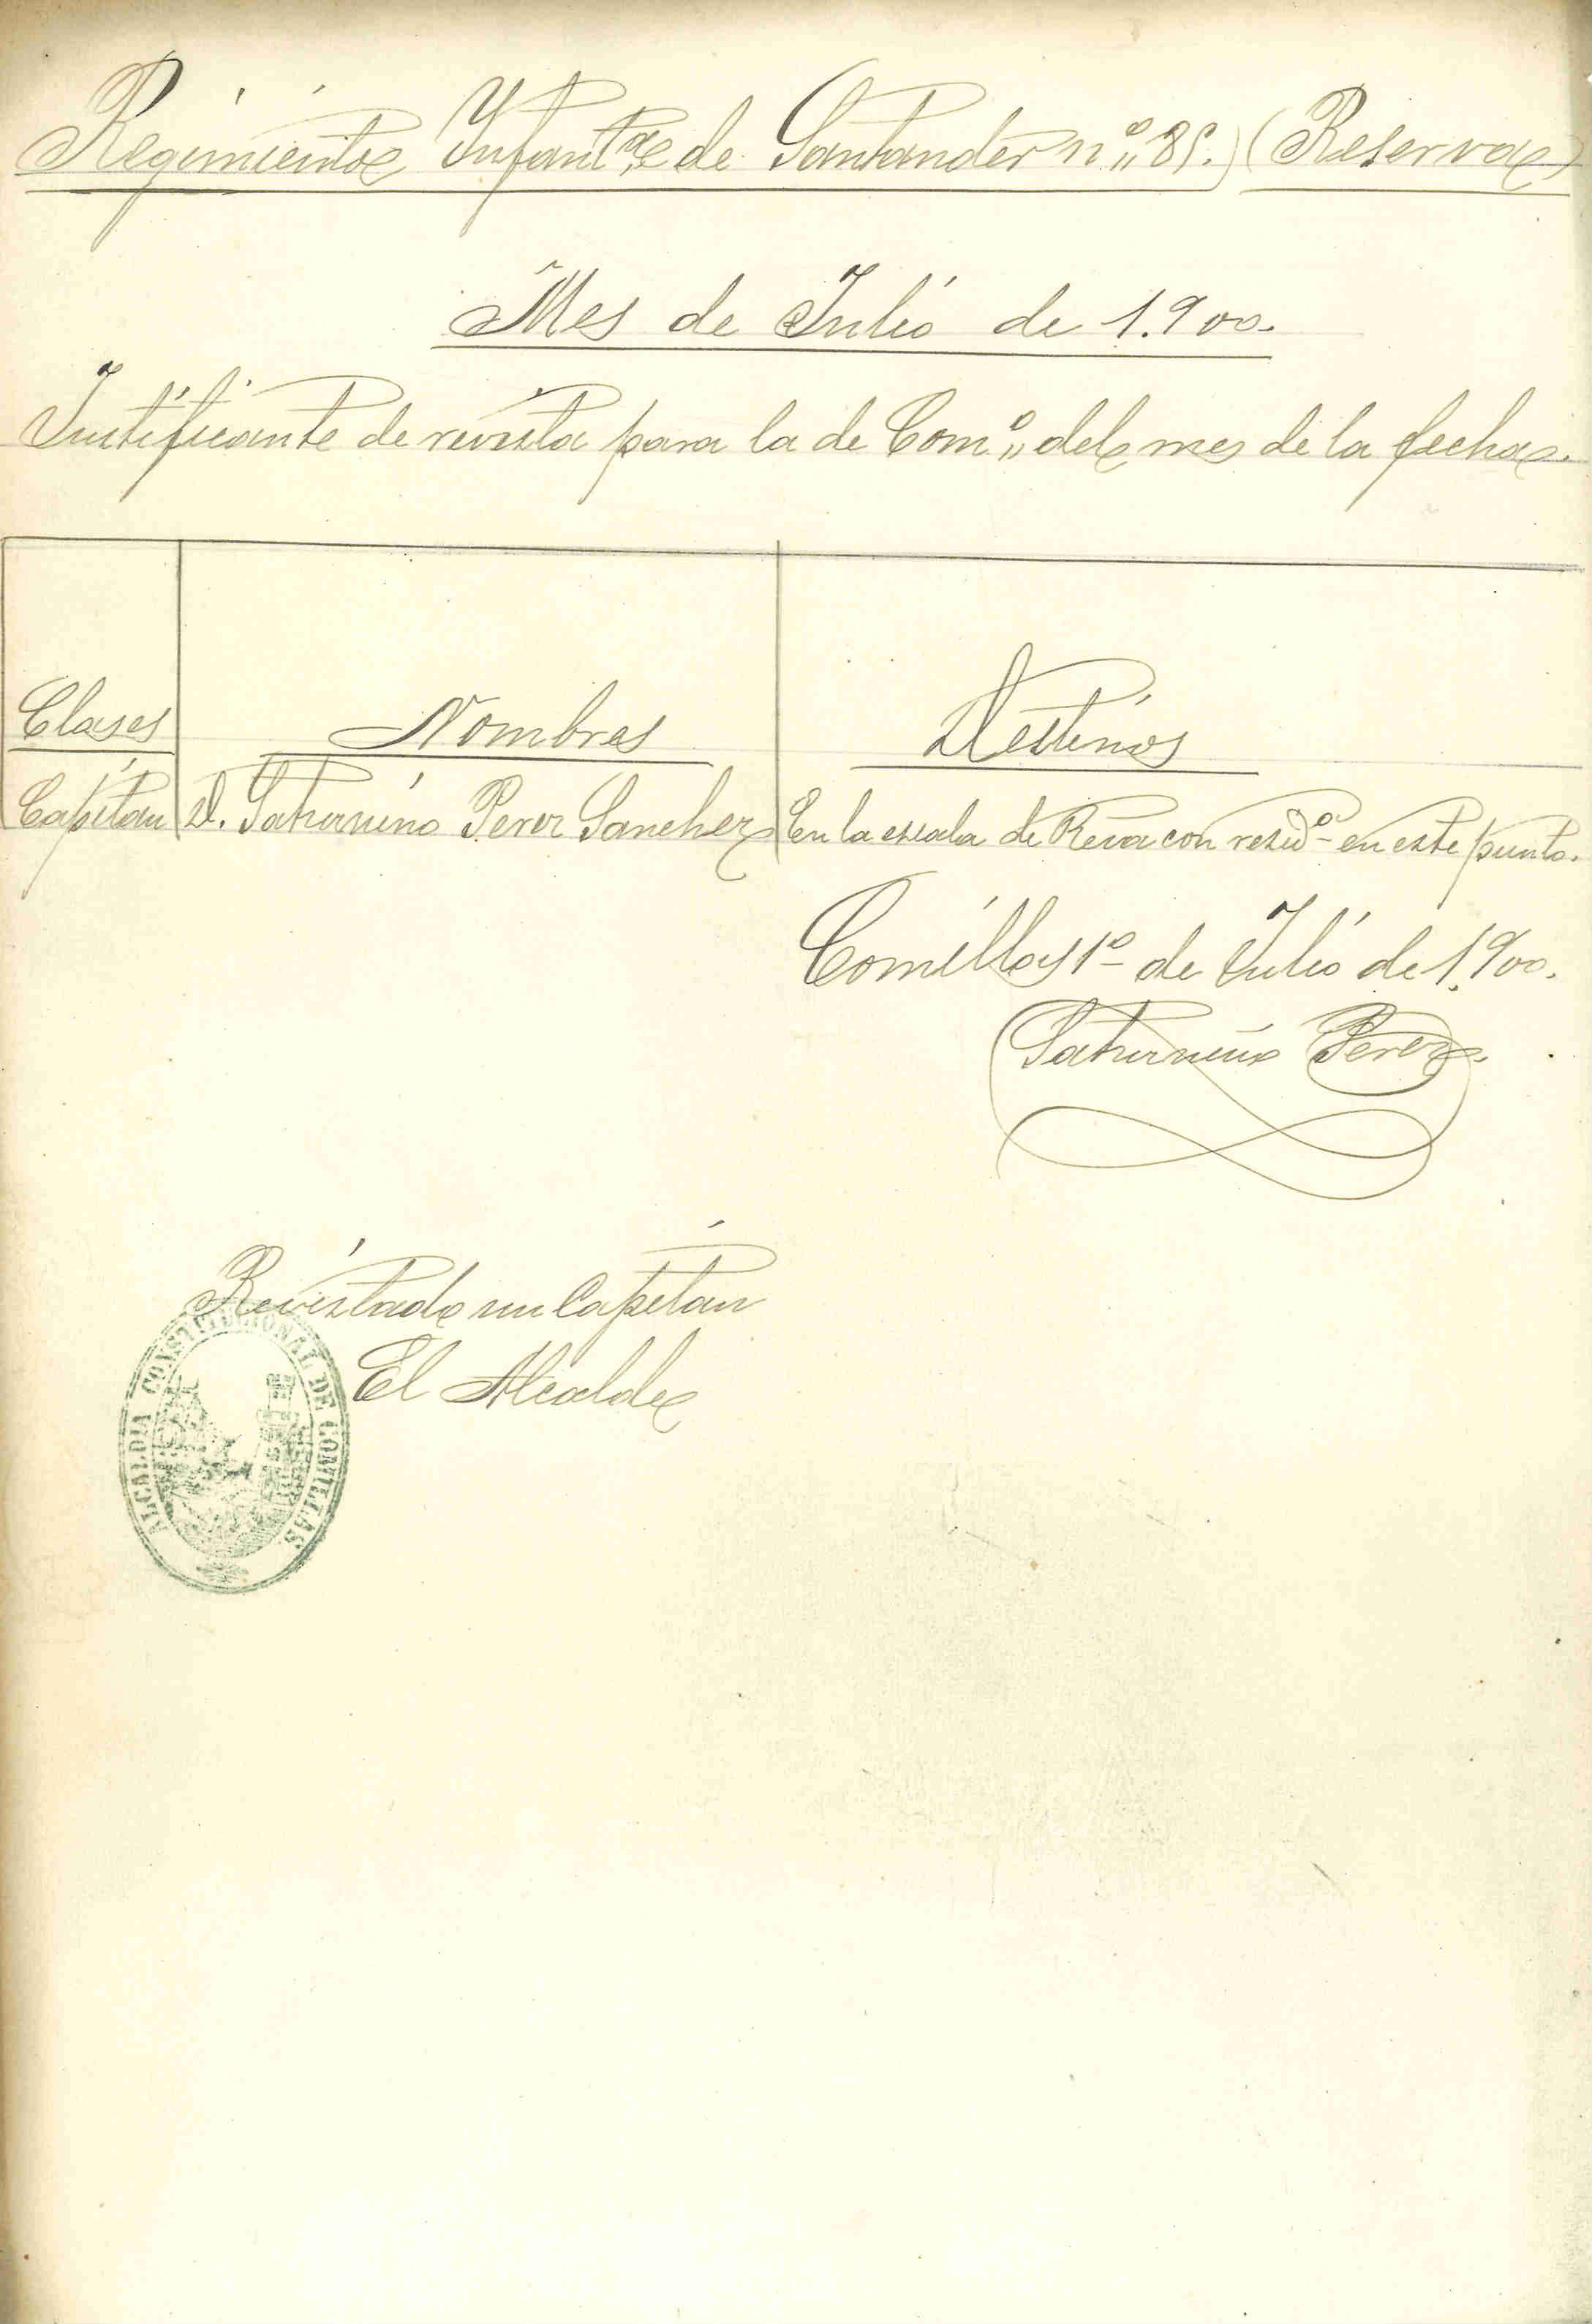 Regimiento Infantª de Santander nº 85. (Reserva)
Mes de Julio de 1.900.
Justificante de revista para la de Comº del mes de la fecha.
Clases Nombres Destinos
Capitan D. Saturnino Perez Sanchez En la escala de Rva con residº en este punto.
Comillas 1º de Julio de 1.900.
Saturnino Perez
Revistado un Capitan
El Alcalde
ALCALDIA CONSTITUCIONAL DE COMILLAS